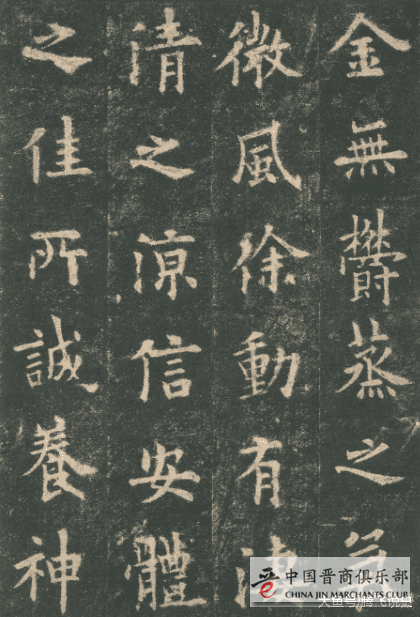 金無欝蒸之氣
微風徐動有淒
清之涼信安體
之佳所誠養神
晋 中国晋商俱乐部
CHINA JIN MARCHANTS CLUB